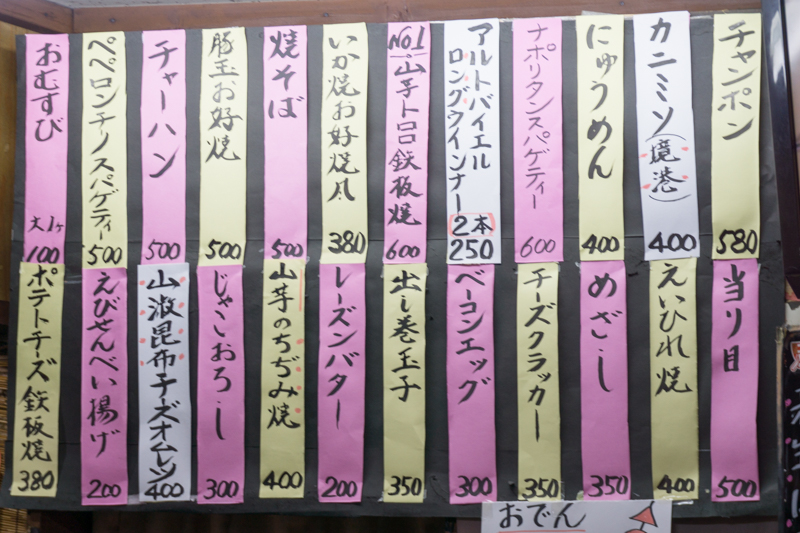 チャンポン
580
カニミソ(境港)
400
にゅうめん
400
ナポリタンスパゲティー
600
アルトバイエル
ロングウインナー
2本
250
No.1
山芋トロロ鉄板焼
600
いか焼お好焼風
380
焼そば
500
豚玉お好焼
500
チャーハン
500
ペペロンチーノスパゲティ
500
おむすび
大1ヶ
100
当り目
500
えいひれ焼
400
めざし
350
チーズクラッカー
350
ベーコンエッグ
300
出し巻玉子
350
レーズンバター
200
山芋のちぢみ焼
400
じゃこおろし
300
山椒昆布チーズオムレツ
400
えびせんべい揚げ
200
ポテトチーズ鉄板焼
380
おでん